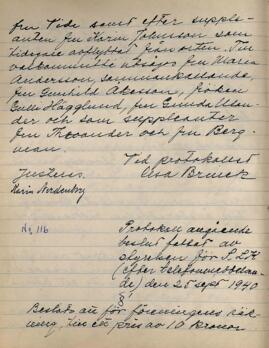 fru Tide samt efter supple-
anten fru Karin Johnson som
tidigare avflyttat från orten. Till
valkommitté utsågs fru Maria
Andersson, sammankallande,
fru Gunhild Akesson, fröken
Gulli Hägglund, fru Gunda Osan-
der och som suppleanter
fru Theander och fru Berg-
man.
Vid protokollet
Justeras: Elsa Brunek
Karin Nordenborg
No 116
Protokoll angående
beslut fattat av
styrelsen för S.L.K
(efter telefonmeddelan-
de) den 25 sept 1940
§ 1
Beslöts att för föreningens räk-
ning, till ett pris av 10 kronor